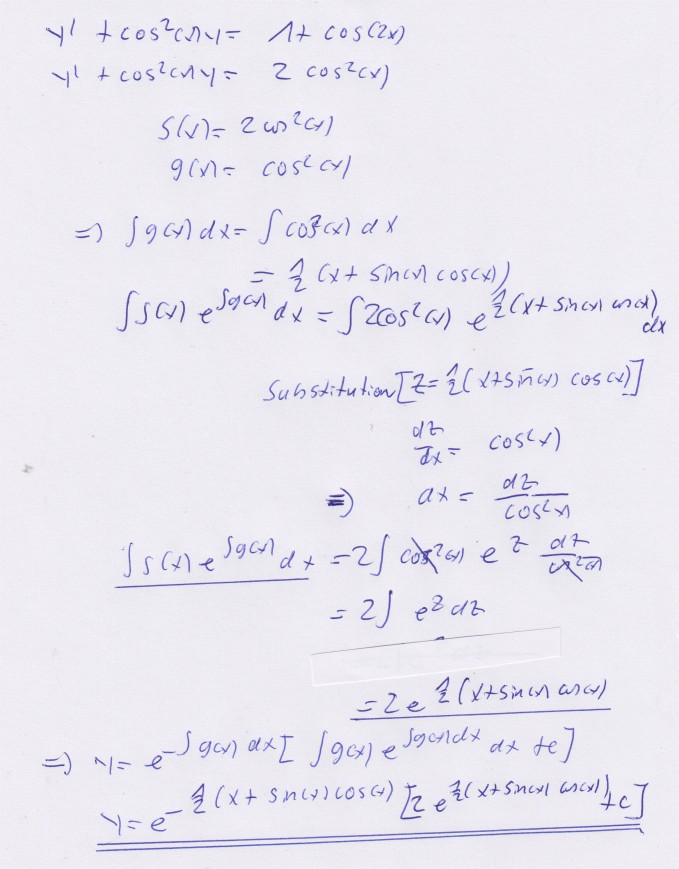 y' + cos²(x) y = 1 + cos(2x)
y' + cos²(x) y = 2 cos²(x)
s(x) = 2 cos²(x)
g(x) = cos²(x)
=> ∫ g(x) dx = ∫ cos²(x) dx
= 1/2 (x + sin(x) cos(x))
∫ s(x) e^∫g(x) dx = ∫ 2cos²(x) e^1/2(x + sin(x) cos(x)) dx
Substitution [z = 1/2 (x + sin(x) cos(x))]
dz/dx = cos²(x)
=> dx = dz/cos²(x)
∫ s(x) e^∫g(x) dx = 2 ∫ cos²(x) e^z dz/cos²(x)
= 2 ∫ e^z dz
= 2 e^1/2 (x + sin(x) cos(x))
=> y = e^-∫g(x) dx [∫ g(x) e^∫g(x)dx dx + c]
y = e^-1/2 (x + sin(x) cos(x)) [2 e^1/2(x + sin(x) cos(x)) + c]